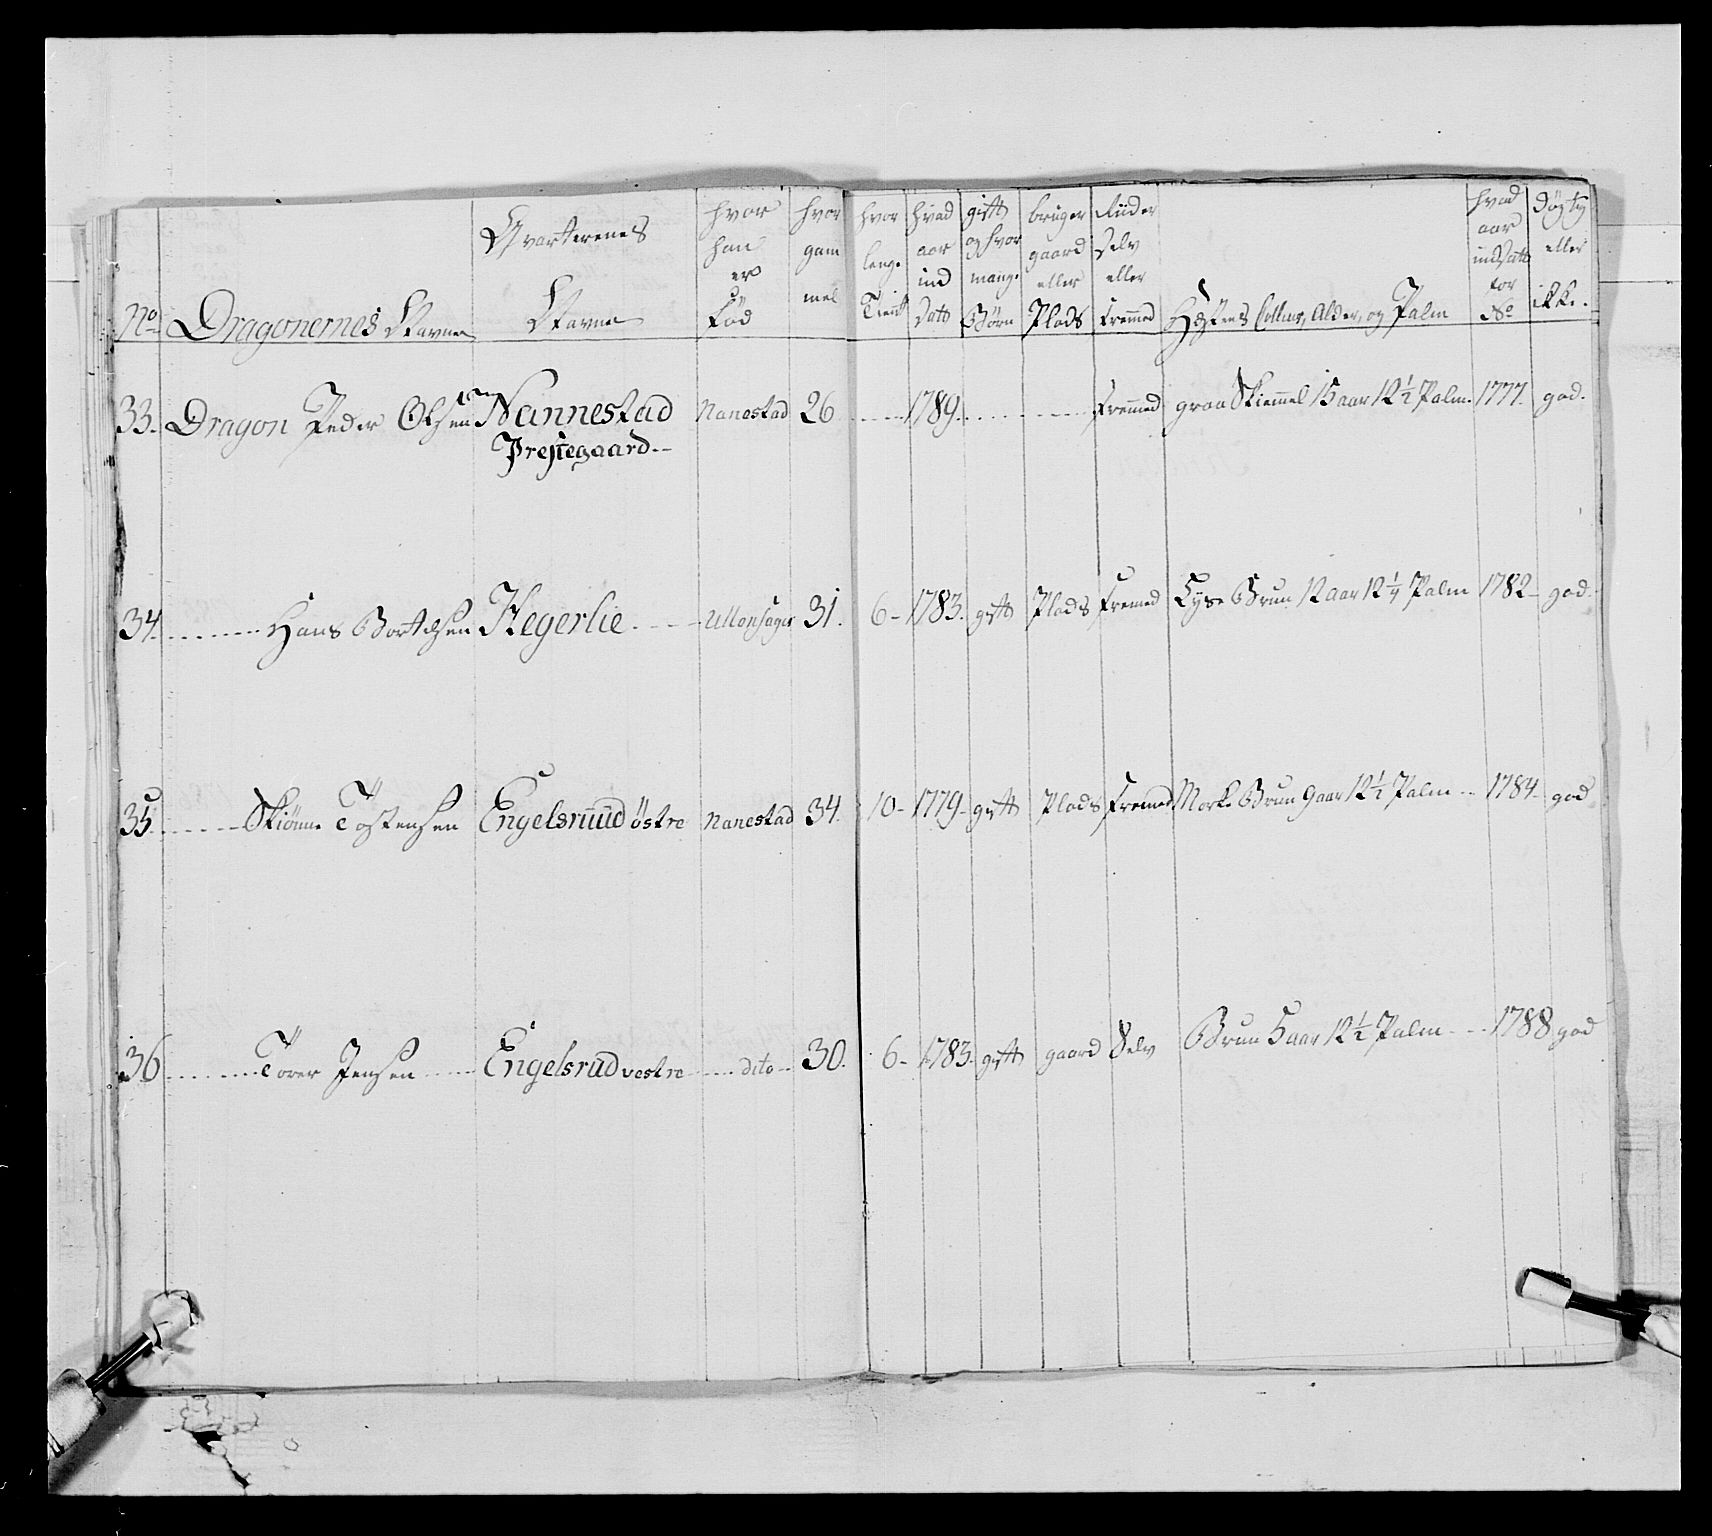 No Dragonernes Navne | Qvarterenes Navne | hvor han er fød | hvor gam mel | hvor leng. Tient | hvad aar ind Datt | gift og hvor mang. Børn | bruger gaard eller Plads | Riider selv eller Fremed | Hæstens Collour, Alder, og Palm | hvad aar indsatt for No | døgtig eller ikke.
33. Dragon Peder Olsen Nannestad Nanestad 26 1789. Fremed graa Skimmel 15 aar 12½ Palm. 1777. god.
Prestegaard
34. Hans Bortelsen Hegerlie Ullensager 31. 6 - 1783. gift Plads Fremed Lyse Brun 12 aar 12¼ Palm 1782 god.
35. Skiønne Tostensen Engelsruud østre Nanestad 34. 10 - 1779 - gift Plads Fremed Morke Brun 9 aar 12½ Palm 1784 - god
36 Torer Jensen Engelsrud vestre dito 30. 6 - 1783. gift gaard Selv Brun 5 aar 12½ Palm 1788 god